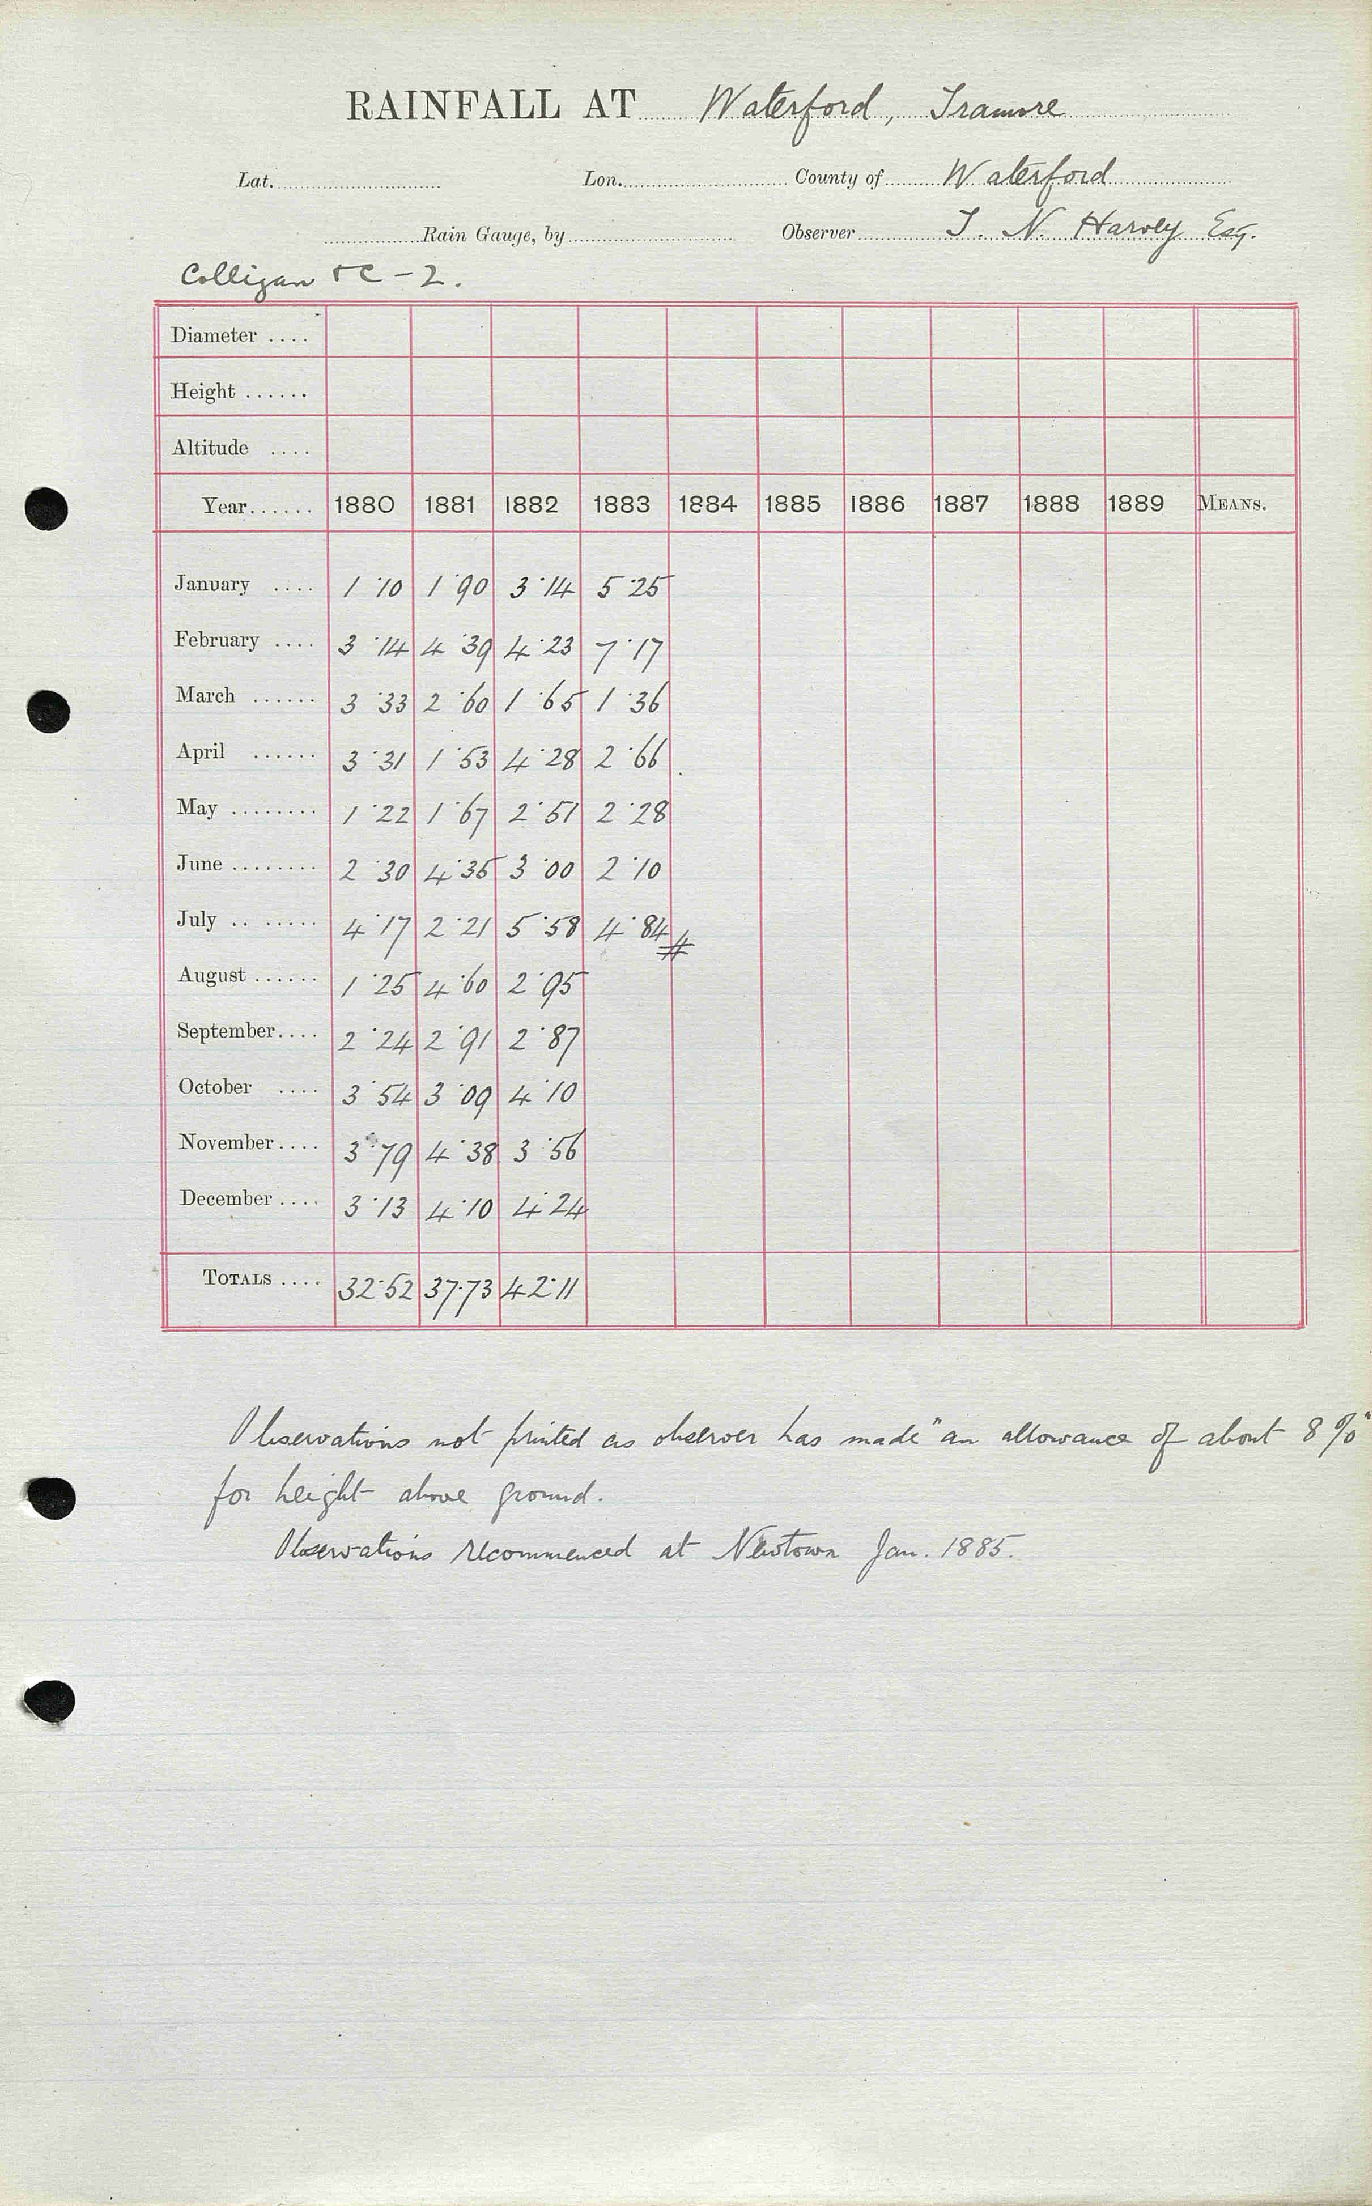 RAINFALL AT Waterford, Tramore
Lat. Lon. County of Waterford
Rain Gauge, by Observer T. N. Harvey Esq.
Colligan & C - 2.
Diameter ....
Height ......
Altitude ....
Year ...... 1880 1881 1882 1883 1884 1885 1886 1887 1888 1889 MEANS.
January .... 1·10 1·90 3·14 5·25
February .... 3·14 4·39 4·23 7·17
March ...... 3·33 2·60 1·65 1·36
April ...... 3·31 1·53 4·28 2·66
May ........ 1·22 1·67 2·51 2·28
June ........ 2·30 4·35 3·00 2·10
July .. ...... 4·17 2·21 5·58 4·84 #
August ...... 1·25 4·60 2·95
September.... 2·24 2·91 2·87
October .... 3·54 3·09 4·10
November.... 3·79 4·38 3·56
December .... 3·13 4·10 4·24
TOTALS .... 32·52 37·73 42·11
Observations not printed as observer has made "an allowance of about 8%"
for height above ground.
Observations recommenced at Newtown Jan. 1885.